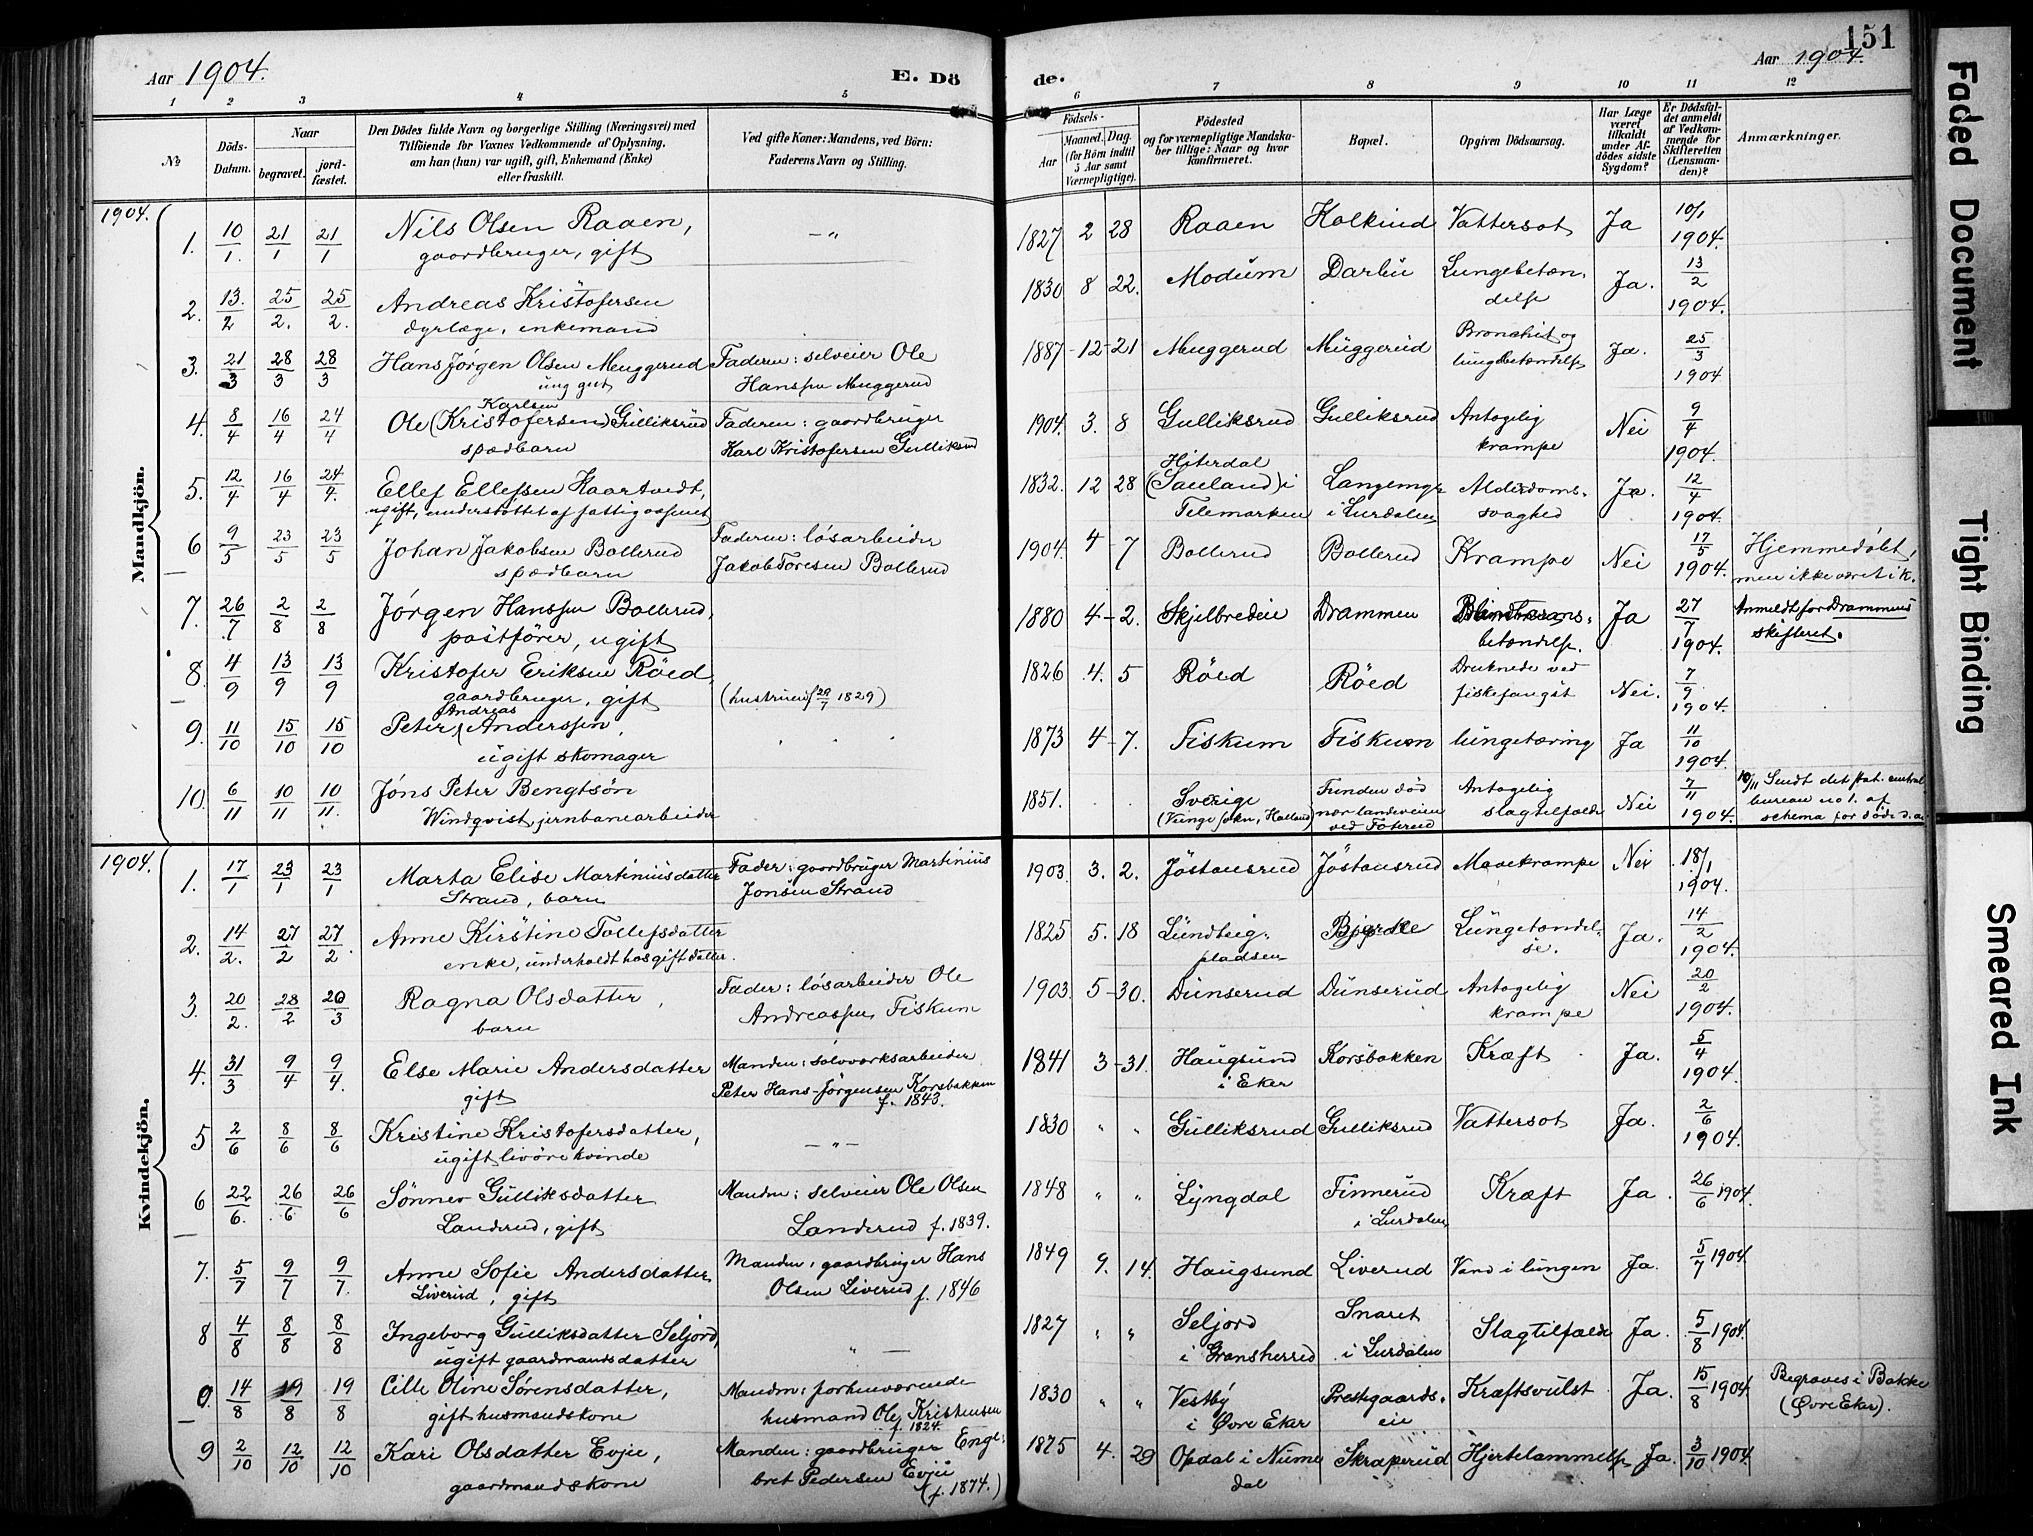 151
Aar 1904. E. Dö
de. Aar 1904.
1 2 3 4 5 6 7 8 9 10 11 12
No
Döds-Datum.
Naar
begravet.
jordfæstet.
Den Dödes fulde Navn og borgerlige Stilling (Næringsvei) med
Tilföiende for Voxnes Vedkommende af Oplysning,
om han (hun) var ugift, gift, Enkemand (Enke)
eller fraskilt.
Ved gifte Koner: Mandens, ved Börn:
Faderens Navn og Stilling.
Födsels-
Aar
Maaned. Dag.
(for Börn indtil
5 Aar samt
Værnepligtige).
Födested
og for værnepligtige Mandskaber tillige: Naar og hvor
konfirmeret.
Bopæl.
Opgiven Dödsaarsag.
Har Læge
været
tilkaldt
under Afdödes sidste
Sygdom?
Er Dödsfaldet anmeldt
af Vedkommende for
Skifteretten
(Lensmanden)?
Anmærkninger.
Mandkjön.
1904.
1. 10/1. 21/1 21/1 Nils Olsen Raaen, —"— 1827 2 28 Raaen Kolkind Vattersot Ja 10/1 1904.
gaardbruger, gift
2. 13./2 25/2. 25/2. Andreas Kristofersen 1830 8 22. Modum Darbu Lungebetændelse Ja. 13/2 1904.
dyrlæge, enkemand
3. 21/3 28/3 28/3 Hans Jørgen Olsen Muggerud Faderen: selveier Ole 1887 12 21 Muggerud Muggerud Bronchit og Ja. 25/3 1904
ung gut Hanssen Muggerud lungebetændelse
4. 8/4 16/4 24/4 Ole (Kristofersen) Karlsen Gulliksrud Faderen: gaardbruger 1904. 3. 8 Gulliksrud Gulliksrud Antagelig Nei 9/4 1904.
spædbarn Karl Kristofersen Gulliksrud krampe
5. 12/4 16/4 24/4. Ellef Ellefsen Haartvedt, 1832. 12 28 Hiterdal (Sauland) i Langemyr Alderdoms- Ja. 12/4 1904.
ugift, understøttet af fattigvæsenet Telemarken i Lurdalen svaghed
6 9/5 23/5 23/5 Johan Jakobsen Bollerud Faderen: løsarbeider 1904. 4 7 Bollerud Bollerud Krampe Nei 17/5 1904. Hjemmedøbt,
spædbarn Jakob Toresen Bollerud men ikke været i k.
7. 26/7 2/8 2/8 Jørgen Hanssen Bollerud, 1880 4 2. Skjelbredeie Drammen Blindtarms- Ja 27/7 1904. Anmeldt for Drammens
postfører, ugift betændelse. skifteret.
8. 4/9 13/9 13/9 Kristofer Eriksen Röed, 1826 4. 5 Röed Röed Druknede ved Nei. 7/9 1904.
gaardbruger, gift (hustruen f 29/7 1829) fiskefangst
9. 11/10 15/10 15/10 Peter Andreas Anderssen, 1873 4 7. Fiskum Fiskum lungetæring Ja 11/10 1904.
ugift skomager
10. 6/11 10/11 10/11. Jöns Peter Bengtsön 1851. Sverige Funden död Antagelig Nei 7/11 1904. 10/11 Sendt det stat. central
Windqvist, jernbanearbeider (Vinge sokn, Halland) nær landeveien slagtilfælde bureau no 1. af
ved Foterud schema for döde
Kvindekjön.
1904.
1. 17/1 23/1 23/1 Marta Elise Martiniusdatter Fader: gaardbruger Martinius 1903. 3. 2. Jöstansrud Jöstansrud Mavekrampe Nei 18/1 1904.
Strand, barn Jonsen Strand
2. 14/2. 27/2 27/2. Anne Kirstine Tollefsdatter 1825 5. 18 Lundteig- Lungetændel- Ja. 14/2 1904.
enke, underholdt hos gift datter. pladsen se.
3. 20/2. 28/2 20/3 Ragna Olsdatter, Fader: løsarbeider Ole 1903. 5 30. Dunserud Dunserud Antagelig Nei 20/2 1904.
barn Andreassen Fiskum krampe
4. 31/3 9/4 9/4. Else Marie Andersdatter Manden: sølvverksarbeider 1841 3 31. Haugsund Korsbakken Kræft Ja. 5/4 1904.
gift Peter Hans-Jörgensen Korsbakken i Eker
f. 1843.
5 2/6 8/6 8/6 Kristine Kristofersdatter, —"— 1830 " " Gulliksrud Gulliksrud Vattersot Ja. 2/6 1904.
ugift livörekvinde
6 22/6. 26/6 26/6 Sønnev Gulliksdatter Manden: selveier Ole Olsen 1848 " " Lyngdal Finnerud Kræft Ja. 26/6 1904
Landerud, gift Landerud f. 1839. i Lurdalen
7. 5/7 9/7 9/7. Anne Sofie Andersdatter Manden: gaardbruger Hans 1849 9. 14. Haugsund Liverud Vand i lungen Ja. 5/7 1904.
Liverud, gift Olsen Liverud f. 1846
8 4/8 8/8 8/8 Ingeborg Gulliksdatter Seljord, 1827 " " Seljord Snaret Slagtilfælde Ja. 5/8 1904.
ugift gaardmandsdatter " — i Gransherred i Lurdalen
9. 14/8 19/8 19/8 Cille Oline Sørensdatter, Manden: forhenværende 1830 " " Vestby Prestgaards- Kræftsvulst Ja. 15/8 1904. Begraves i Bakke
gift husmandskone husmand Ole Kristensen i Øvre Eker eie (Øvre Eker).
f. 1824.
9 2/10 12/10 12/10 Kari Olsdatter Evju, Manden: gaardbruger Enge- 1875 4. 29 Opdal i Nume Skraperud Hjertelammelse Ja. 3/10 1904.
gaardmandskone bret Pedersen Evju dal
(f. 1874.)
Faded Document
Tight Binding
Smeared Ink